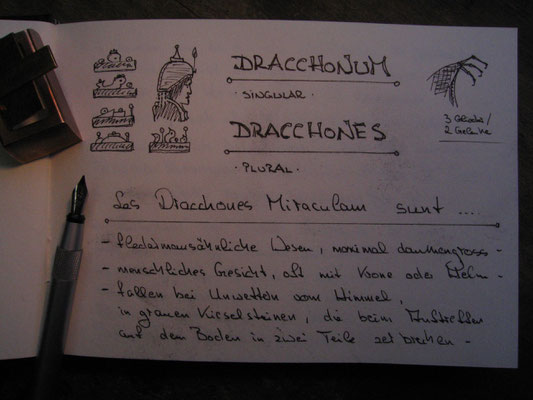 DRACCHONUM
· SINGULAR ·
DRACCHONES
· PLURAL ·
3 Glieder/
2 Gelenke
Las Dracchones Miraculam sunt ....
- fledermausähnliche Wesen, maximal daumengross -
- menschliches Gesicht, oft mit Krone oder Helm -
- fallen bei Unwettern vom Himmel,
in grauen Kieselsteinen, die beim Auftreffen
auf dem Boden in zwei Teile zerbrechen -